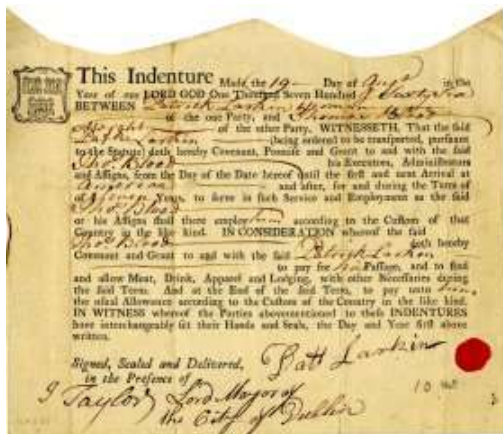 This Indenture Made the 19 Day of Augt in the
Year of our LORD GOD One Thousand Seven Hundred & Sixty Six
BETWEEN Patrick Larkin Yeoman
of the one Party, and Thomas Blood
of the other Party, WITNESSETH, That the said
Patrick Larkin (being ordered to be transported, pursuant
to the Statute) doth hereby Covenant, Promise and Grant to and with the said
Thos Blood his Executors, Administrators
and Assigns, from the Day of the Date hereof until the first and next Arrival at
American and after, for and during the Term of
of Seven Years, to serve in such Service and Employment as the said
Thos Blood
or his Assigns shall there employ him according to the Custom of that
Country in the like kind. IN CONSIDERATION whereof the said
Thos Blood doth hereby
Covenant and Grant to and with the said Patrick Larkin
to pay for his Passage, and to find
and allow Meat, Drink, Apparel and Lodging, with other Necessaries during
the said Term. And at the End of the said Term, to pay unto him
the usual Allowance according to the Custom of the Country in the like kind.
IN WITNESS whereof the Parties abovementioned to these INDENTURES
have interchangeably set their Hands and Seals, the Day and Year first above
written.
Signed, Sealed and Delivered,
in the Presence of
Patt Larkin
J Taylor Lord Mayor of
the City of Dublin